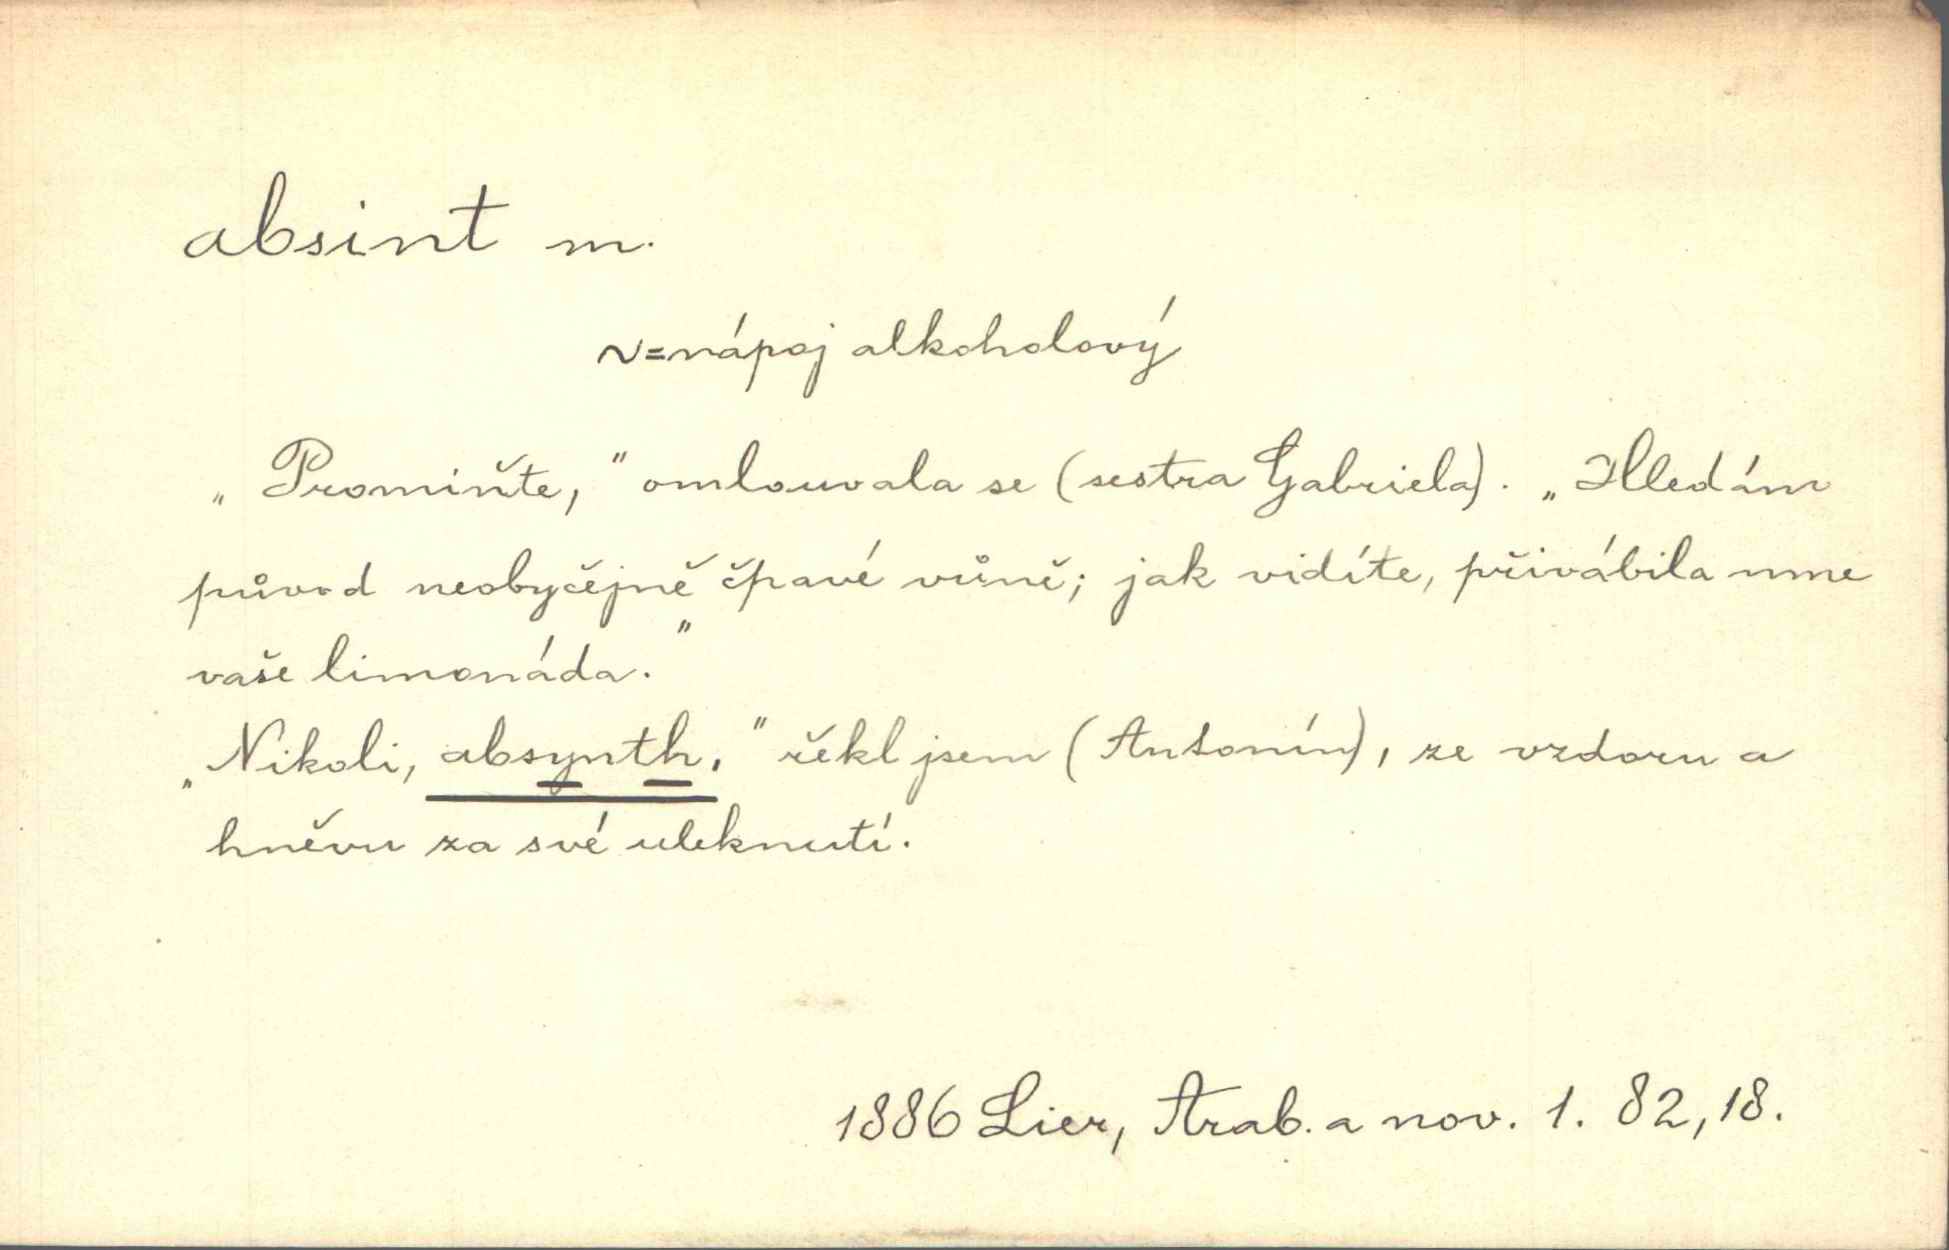 absint m.
~=nápoj alkoholový
„Promiňte," omlouvala se (sestra Gabriela). „Hledám
původ neobyčejně čpavé vůně; jak vidíte, přivábila mne
vaše limonáda."
„Nikoli, absynth," řekl jsem (Antonín), ze vzdoru a
hněvu za své uleknutí.
1886 Lier, Arab. a nov. 1. 82, 18.